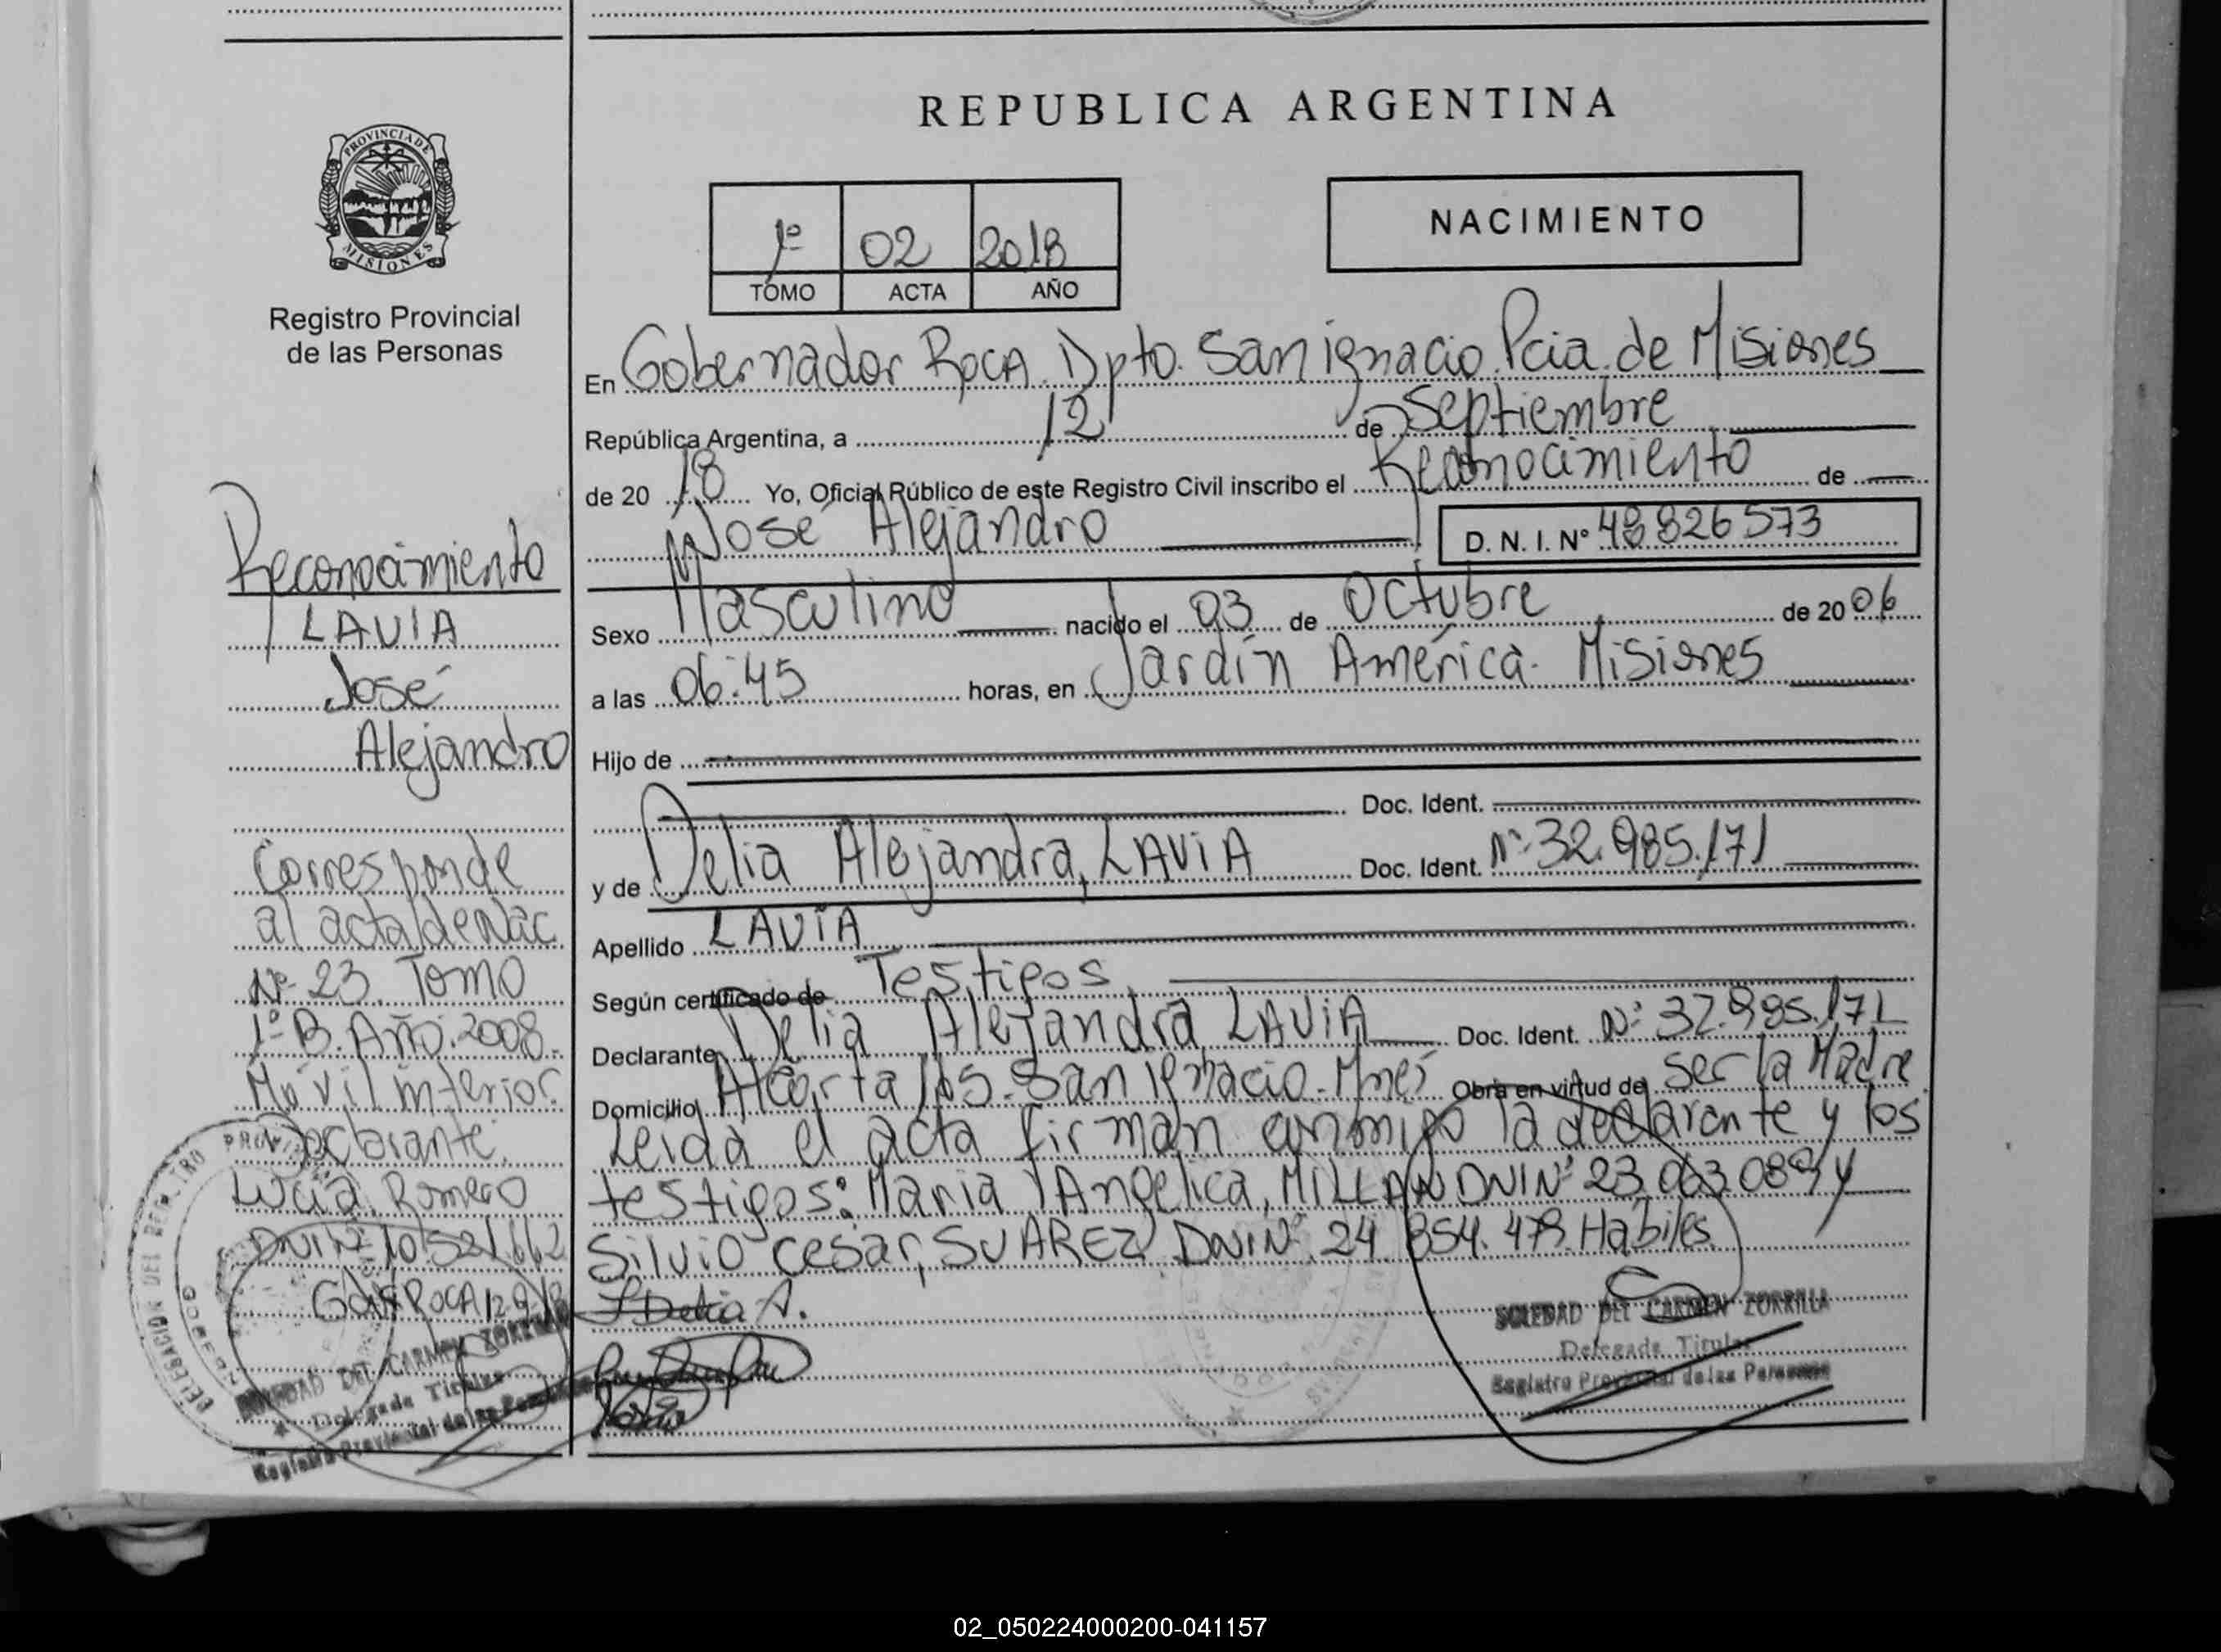 REPUBLICA ARGENTINA
PROVINCIA DE
MISIONES
Registro Provincial
de las Personas
NACIMIENTO
1º 02 2018
TOMO ACTA AÑO
En Gobernador Roca. Dpto. San ignacio. Pcia. de Misiones
República Argentina, a 12 de Septiembre
de 2018 Yo, Oficial Público de este Registro Civil inscribo el Reconocimiento de
José Alejandro D. N. I. Nº 48826573
Sexo Masculino nacido el 03 de Octubre de 2006
a las 06:45 horas, en Jardín América. Misiones
Hijo de
Doc. Ident.
y de Delia Alejandra, LAVIA Doc. Ident. Nº 32.985.171
Apellido LAVIA
Según certificado de Testigos
Declarante Delia Alejandra LAVIA Doc. Ident. Nº 32.985.171
Domicilio Alcorta 105. San Ignacio. Mnes Obra en virtud de ser la Madre
Leida el acta firman conmigo la declarante y los
testigos: Maria Angelica, MILLAN DNI Nº 23.063.089 y
Silvio Cesar, SUAREZ DNI Nº 24 854. 479. Habiles.
Delia A.
SOLEDAD DEL CARMEN ZORRILLA
Delegada Titular
Registro Provincial de las Personas
Reconocimiento
LAVIA
José
Alejandro
Corresponde
al acta de Nac
Nº 23. Tomo
1º B. Año. 2008.
Móvil interior.
Declarante.
Lucia Romero
DNI Nº 10.521.662
Gdor ROCA 12-9-18
SOLEDAD DEL CARMEN ZORRILLA
Delegada Titular
Registro Provincial de las Personas
02_050224000200-041157